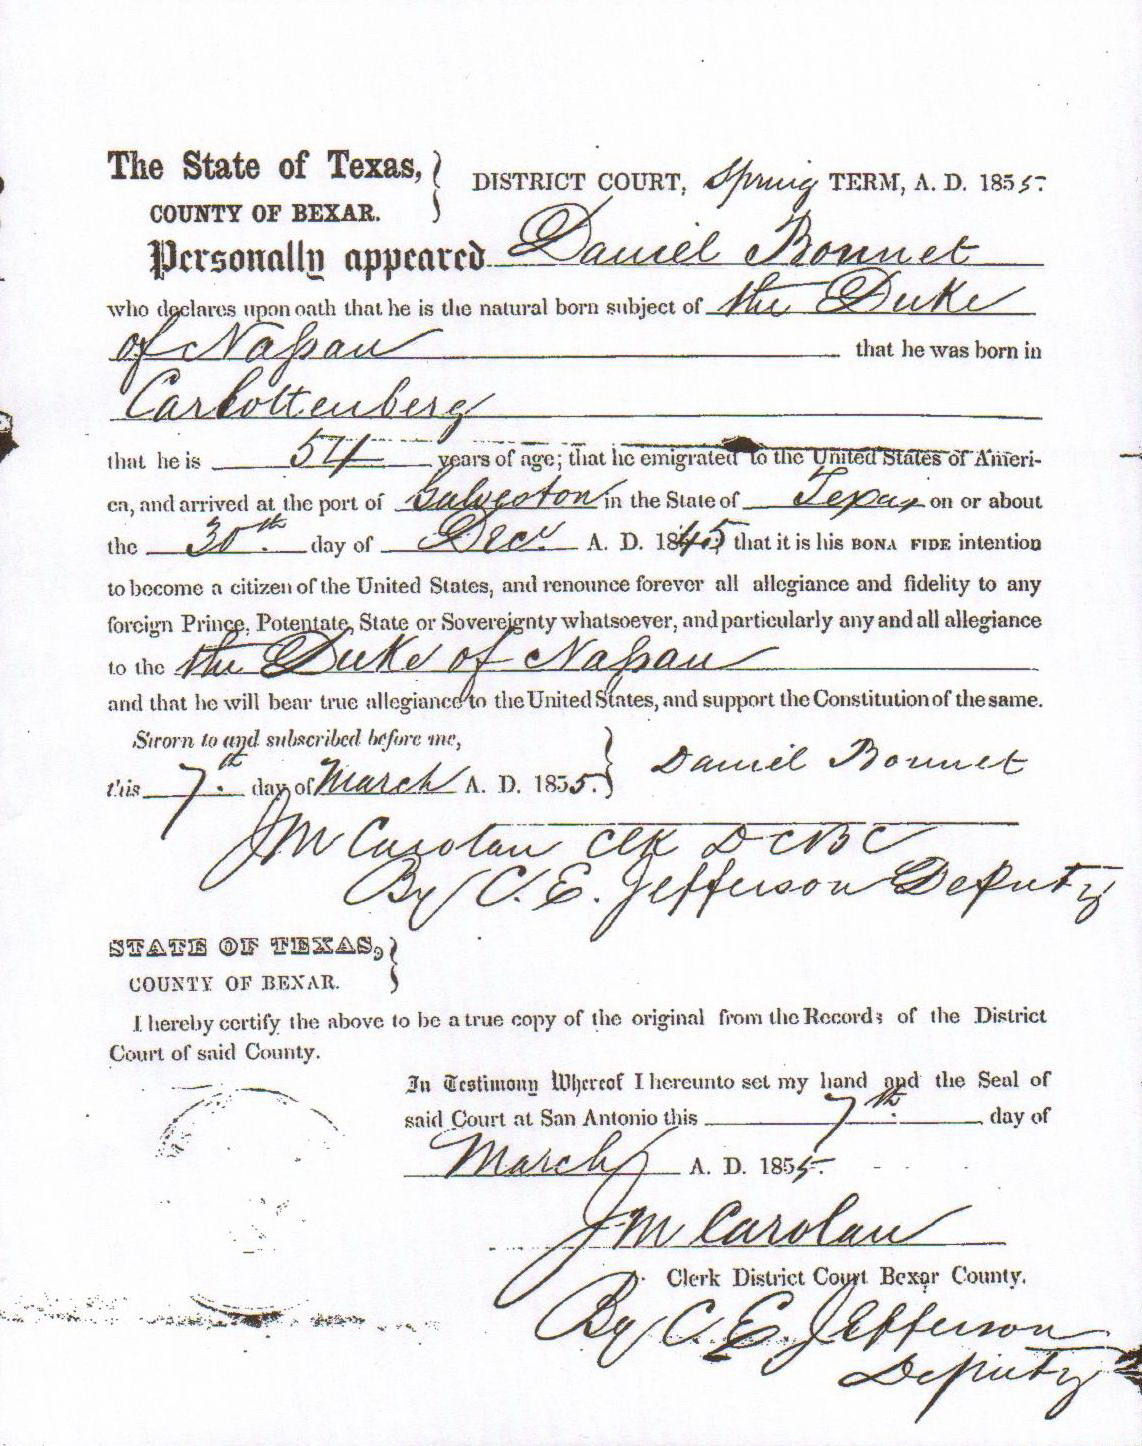 The State of Texas, } DISTRICT COURT, Spring TERM, A. D. 1855.
COUNTY OF BEXAR.
Personally appeared Daniel Bonnet
who declares upon oath that he is the natural born subject of the Duke
of Naſsau that he was born in
Carlottenberg
that he is 54 years of age; that he emigrated to the United States of Ameri-
ca, and arrived at the port of Galveston in the State of Texas on or about
the 30th day of Decr. A. D. 1845, that it is his BONA FIDE intention
to become a citizen of the United States, and renounce forever all allegiance and fidelity to any
foreign Prince, Potentate, State or Sovereignty whatsoever, and particularly any and all allegiance
to the the Duke of Naſsau
and that he will bear true allegiance to the United States, and support the Constitution of the same.
Sworn to and subscribed before me,
this 7th. day of March A. D. 1855. } Daniel Bonnet
JM Carolan Clk DCBC
By C. E. Jefferson Deputy
STATE OF TEXAS, }
COUNTY OF BEXAR.
I hereby certify the above to be a true copy of the original from the Records of the District
Court of said County.
In Testimony Whereof I hereunto set my hand and the Seal of
said Court at San Antonio this 7th. day of
March A. D. 1855.
JM Carolan
Clerk District Court Bexar County.
By C. E. Jefferson
Deputy